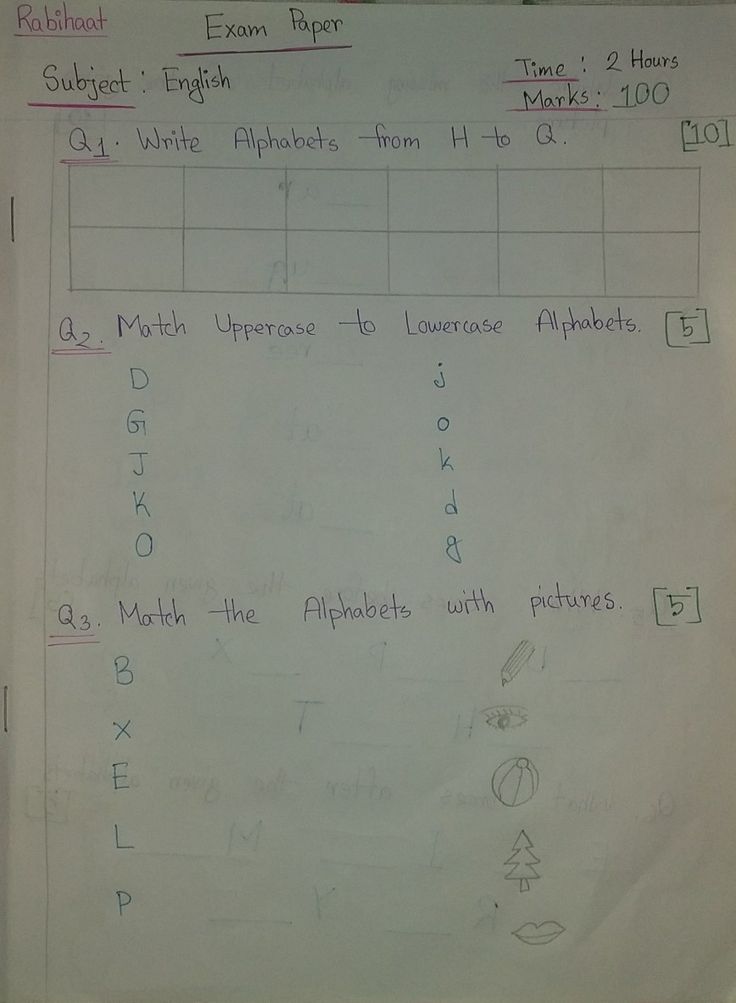 Rabihaat
Exam Paper
Subject: English
Time: 2 Hours
Marks: 100
Q1. Write Alphabets from H to Q. [10]
Q2. Match Uppercase to Lowercase Alphabets. [5]
D j
G o
J k
K d
O g
Q3. Match the Alphabets with pictures. [5]
B
X
E
L
P